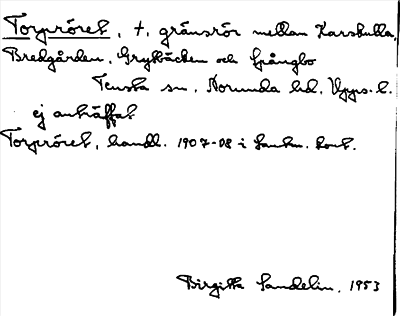 Torpröret, †, gränsrör mellan Karskulla,
Bredgården, Grytbäcken och Spångbo
Tensta sn, Norunda hd, Upps. l.
ej anträffat
Torpröret, handl. 1907-08 i Lantm. kont.
Birgitta Sandelin, 1953